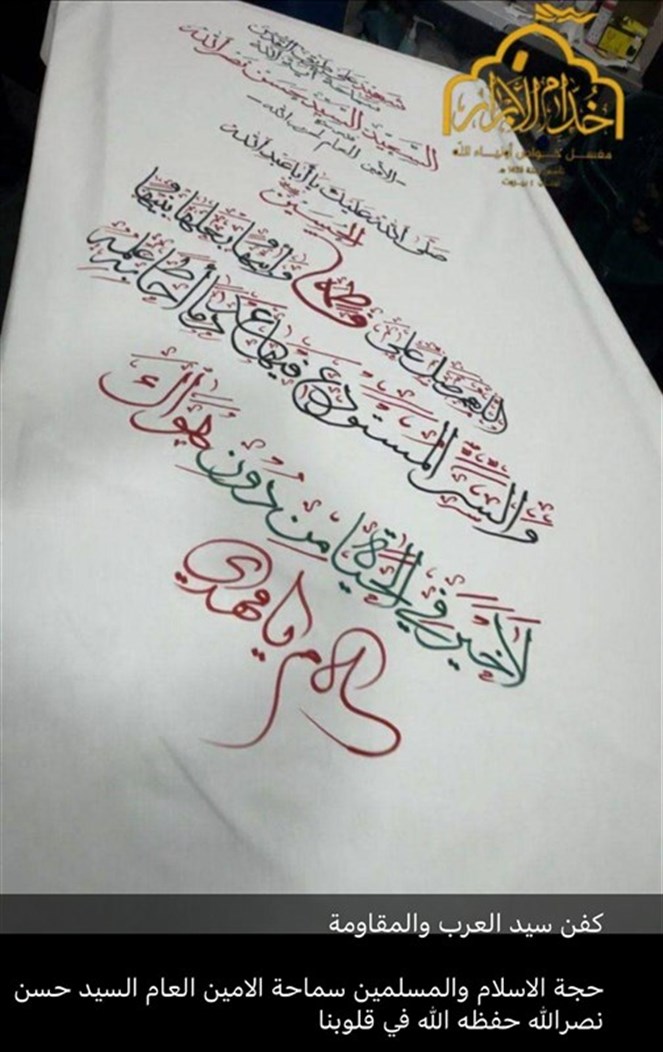 خدام الأبرار
مغسل خواص أولياء الله
شهيد على طريق القدس
سماحة آية الله
السعيد السيد حسن نصر الله
- الأمين العام لحزب الله -
صلى الله عليك يا أبا عبد الله
الحسين
اللهم صل على فاطمة وأبيها وبعلها وبنيها
والسر المستودع فيها عدد ما أحاط به علمك
لا خير في الحياة من دون هواك
سلام يا مهدي
كفن سيد العرب والمقاومة
حجة الاسلام والمسلمين سماحة الامين العام السيد حسن
نصرالله حفظه الله في قلوبنا